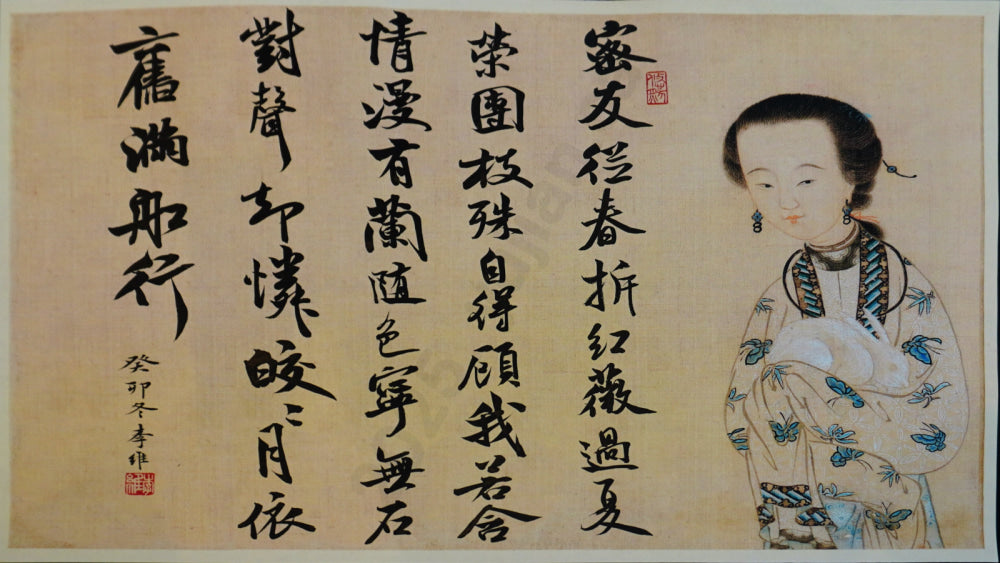 密友從春拆紅薇過夏
榮團枝殊自得顧我若含
情漫有蘭隨色寧無石
對聲却憐皎〻月依
舊滿船行
癸卯冬李維